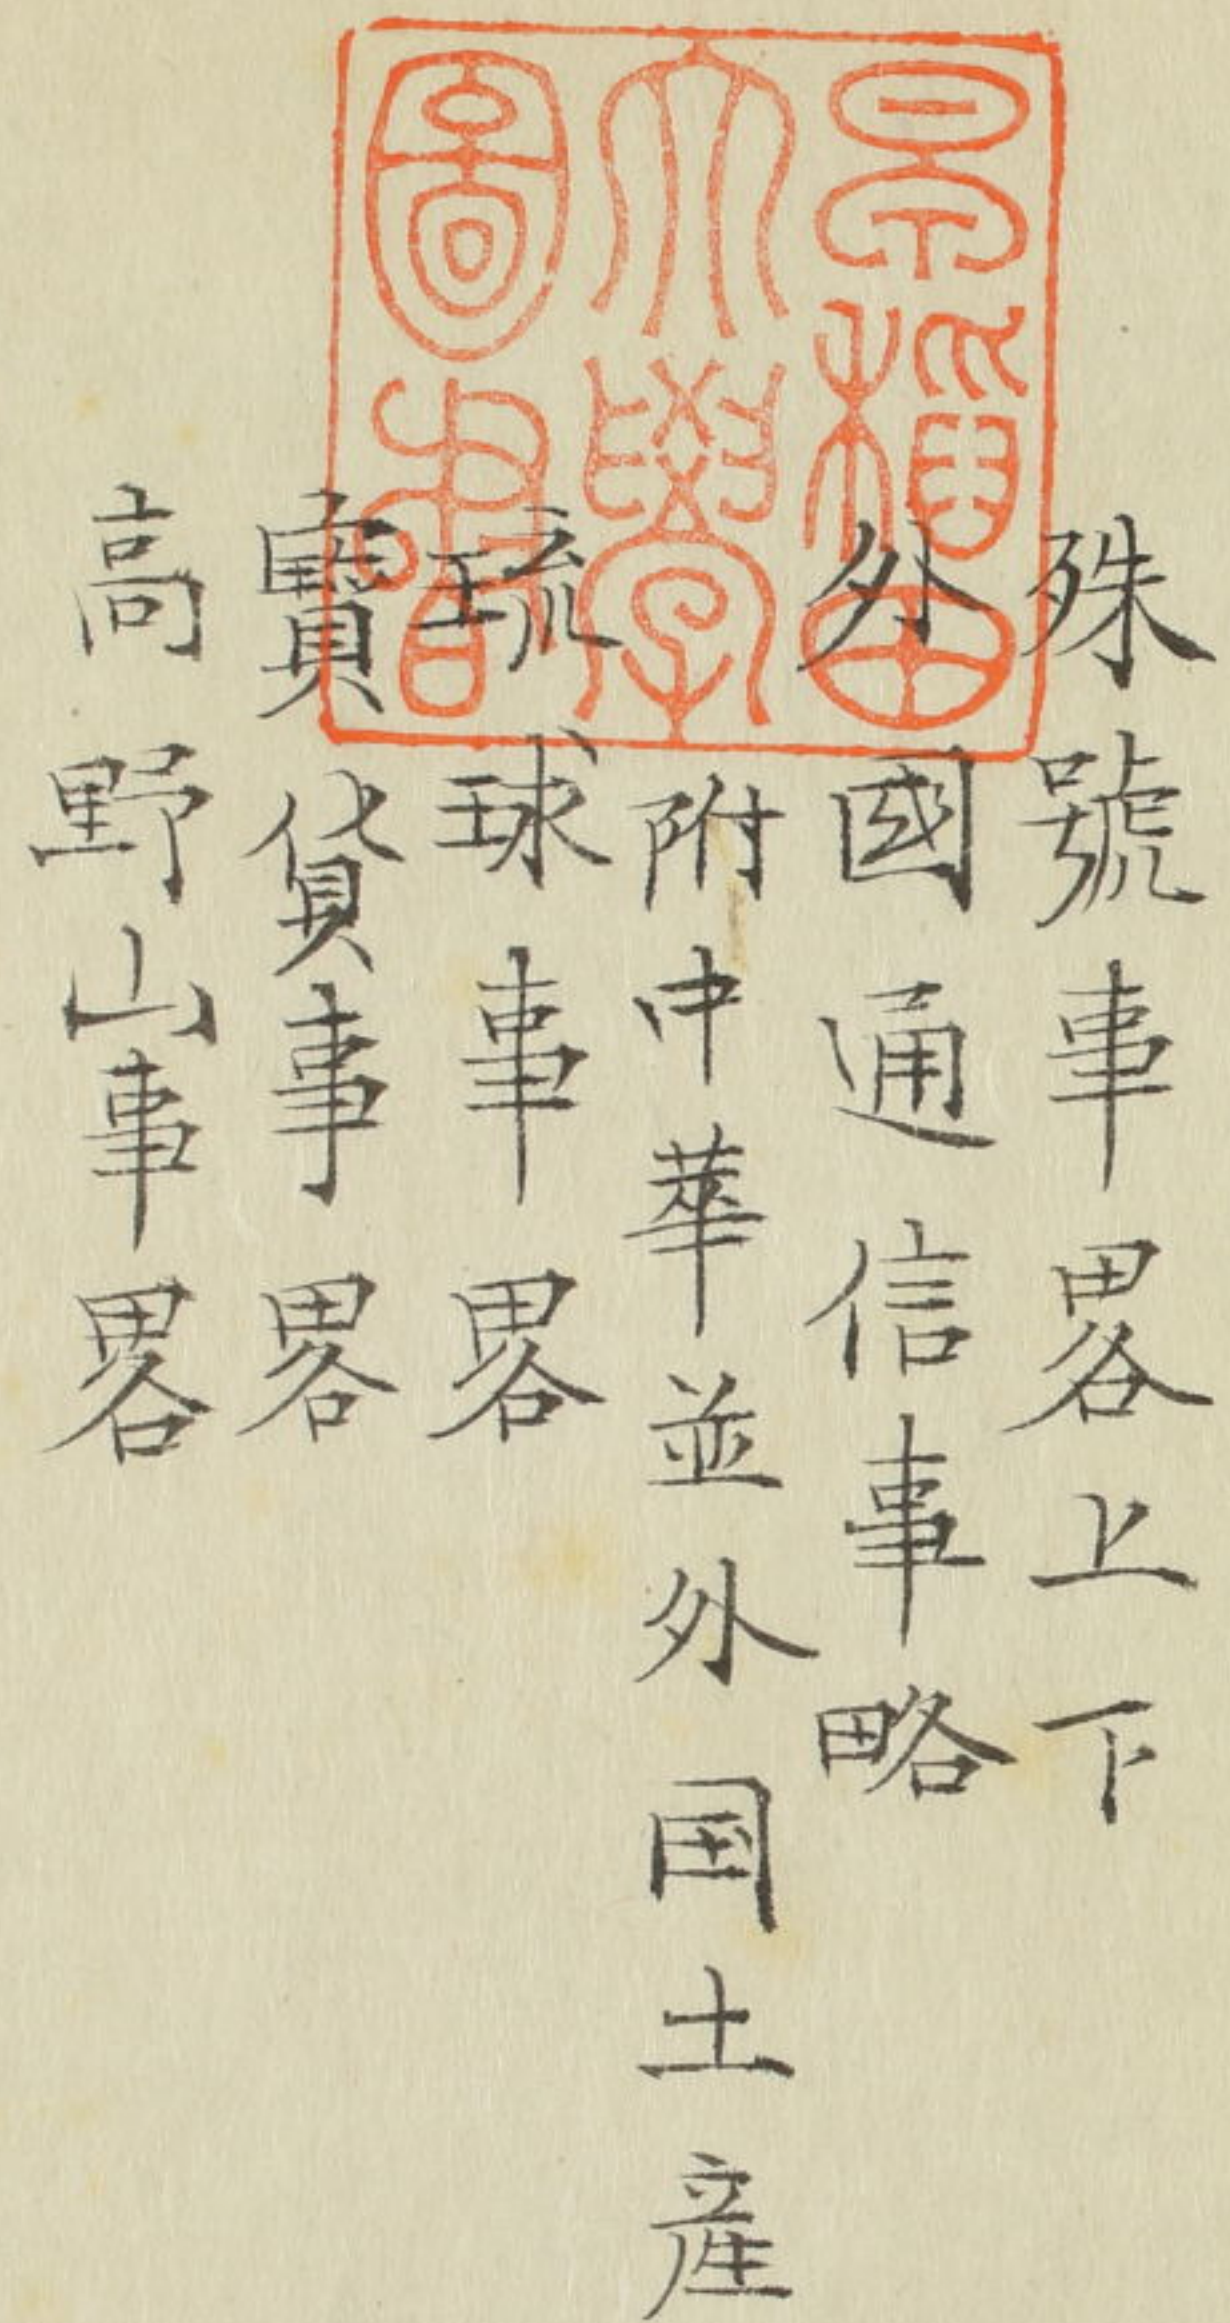 殊號事畧上下
外國通信事略
附中華並外国土産
琉球事畧
寶貨事畧
高野山事畧
早稲田
大學
圖書